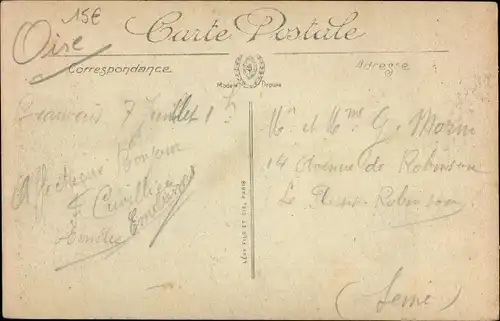 15€
Oise
Carte Postale
Correspondance
Adresse
Modèle Déposé
Beauvais 7 Juillet 1
Affectueux Bonjour
Cuvillier
Emilie
Mr et Mme G. Morin
14 Avenue de Robinson
Le Plessis-Robinson
(Seine)
LÉVY FILS ET CIE, PARIS